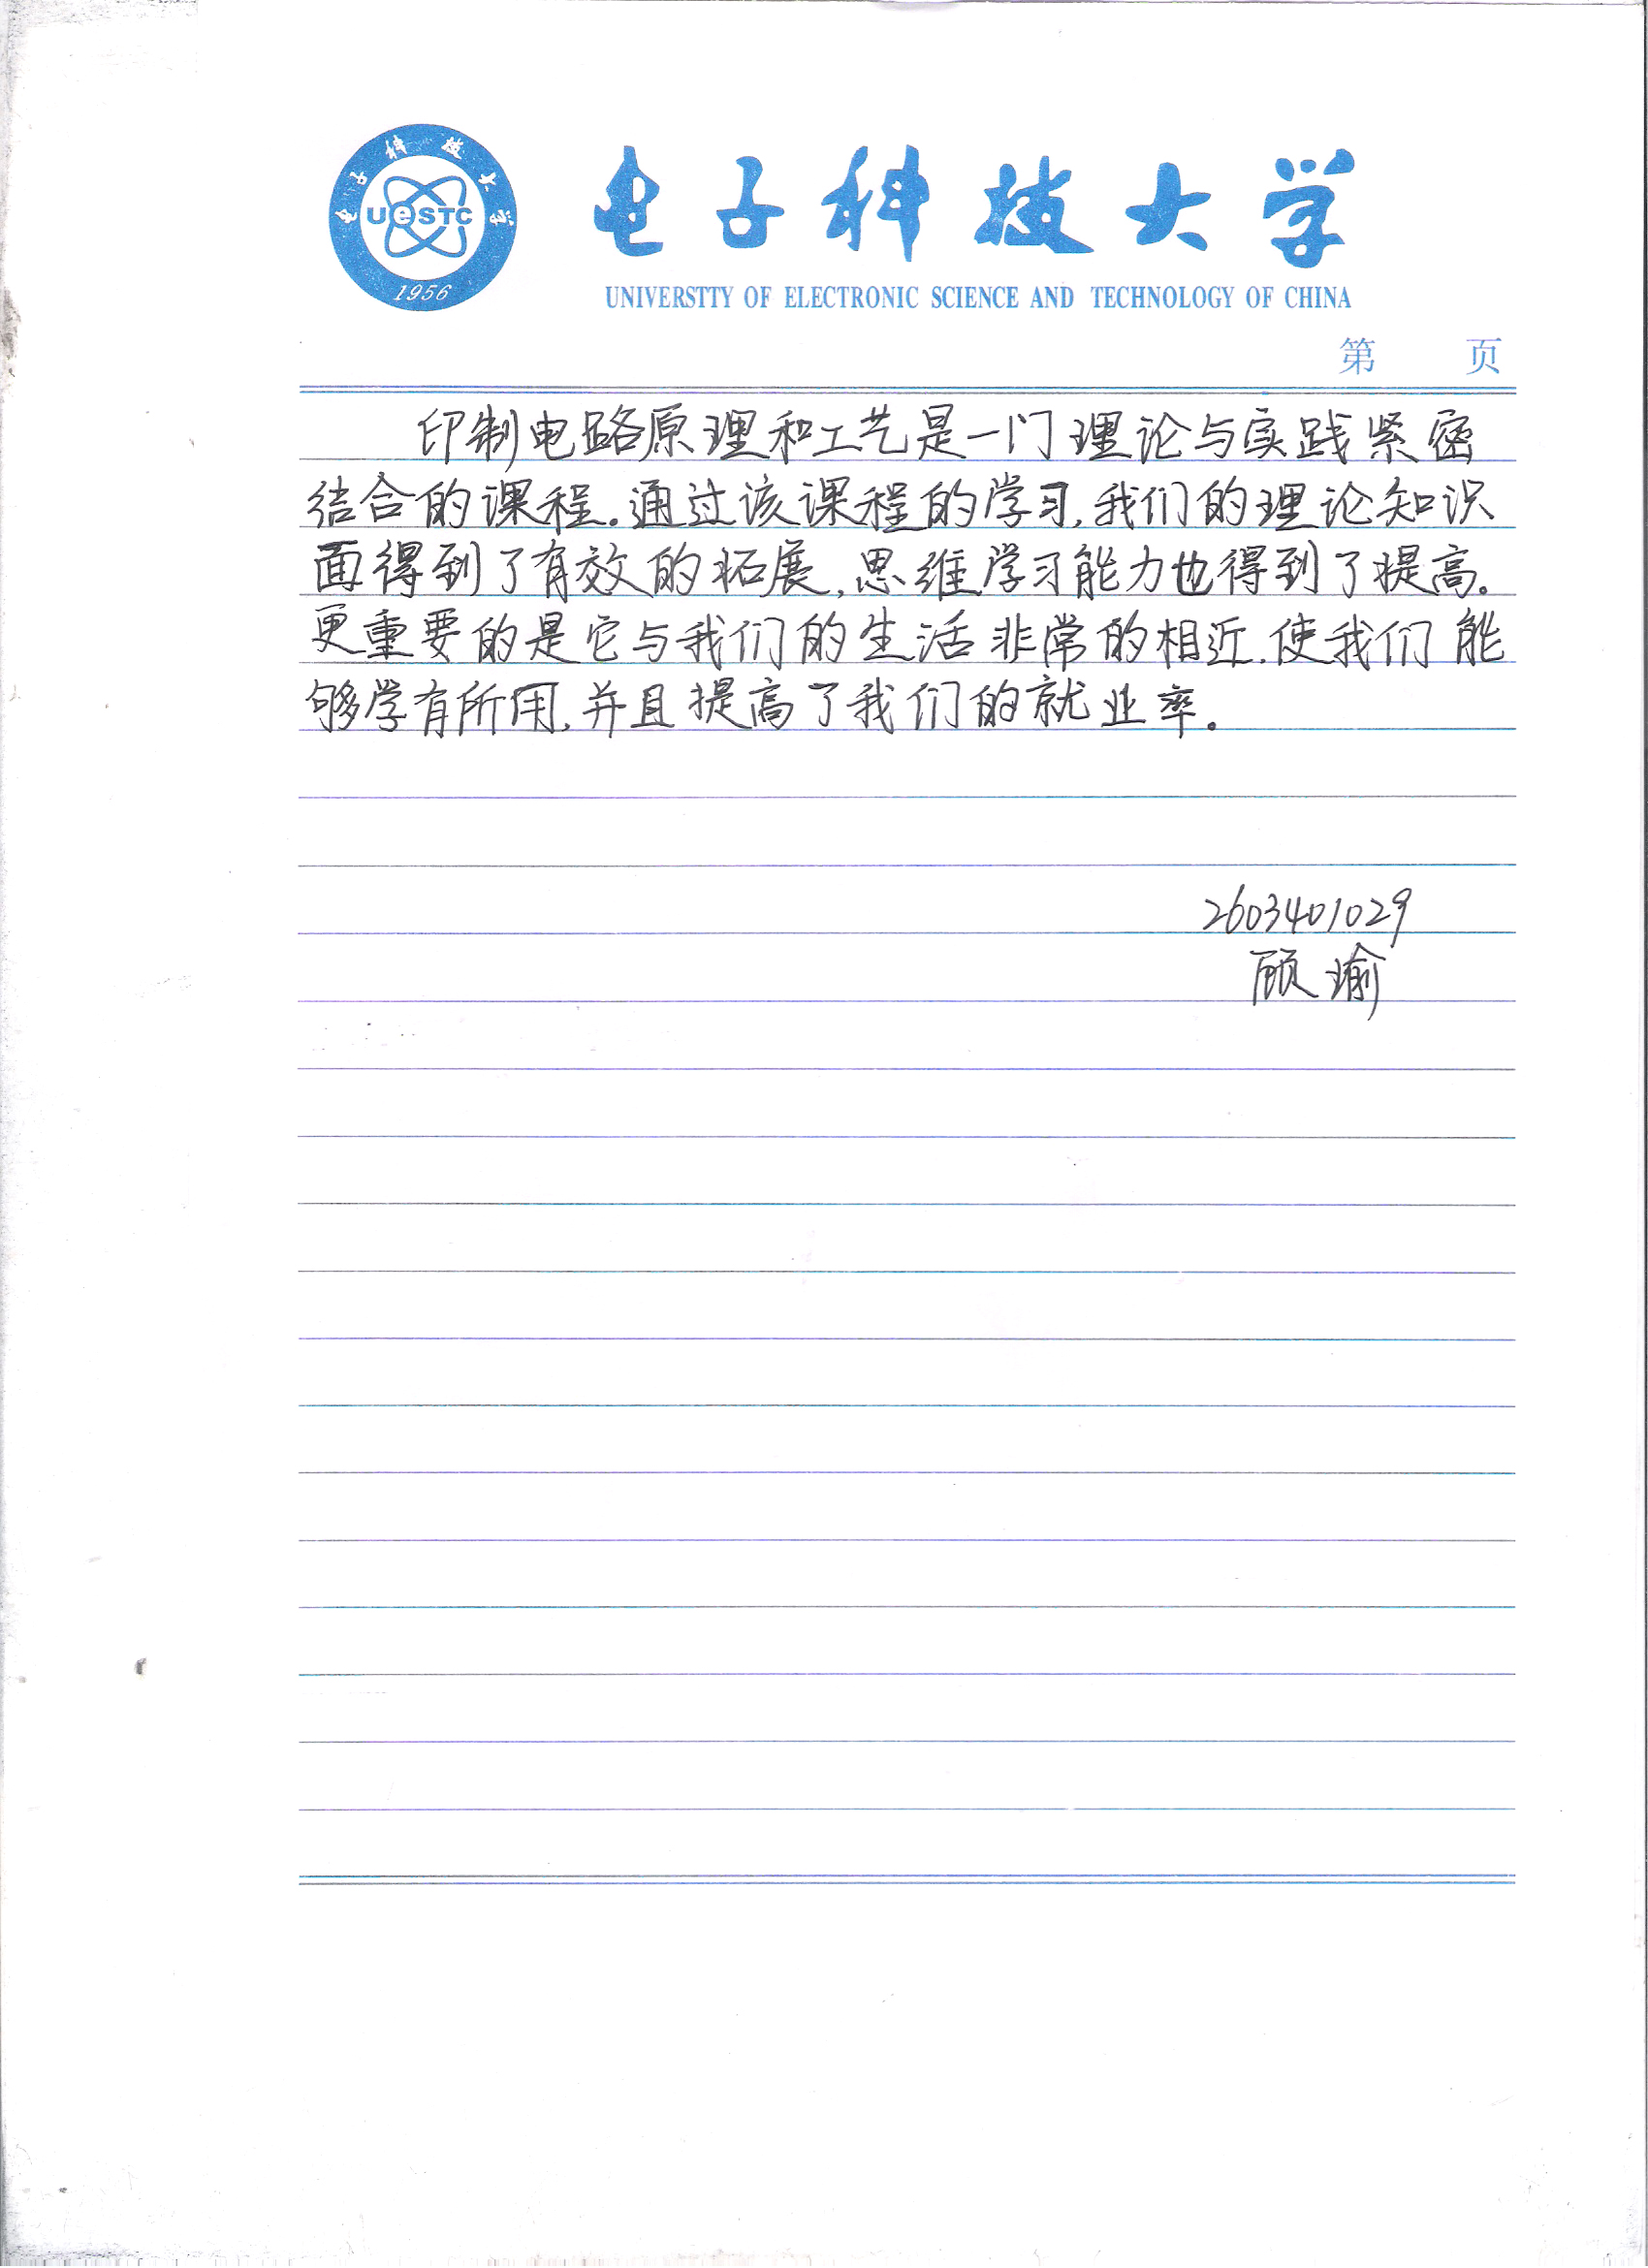 电子科技大学
UeSTC
1956
电子科技大学
UNIVERSTTY OF ELECTRONIC SCIENCE AND TECHNOLOGY OF CHINA
第 页
印制电路原理和工艺是一门理论与实践紧密
结合的课程。通过该课程的学习,我们的理论知识
面得到了有效的拓展,思维学习能力也得到了提高。
更重要的是它与我们的生活非常的相近.使我们能
够学有所用,并且提高了我们的就业率。
2603401029
顾瑜